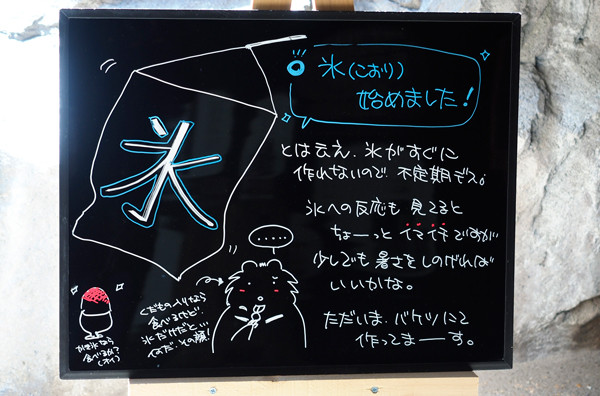 氷
氷(こおり)
始めました!
とは云え、氷がすぐに
作れないので、不定期デス。
氷への反応も 見てると
ちょーっと イマイチですが
少しでも 暑さをしのげれば
いいかな。
ただいま、バケツにて
作ってまーす。
.....
くだもの入りなら
食べるけど…
氷だけだと…
かき氷なら
食べるが?